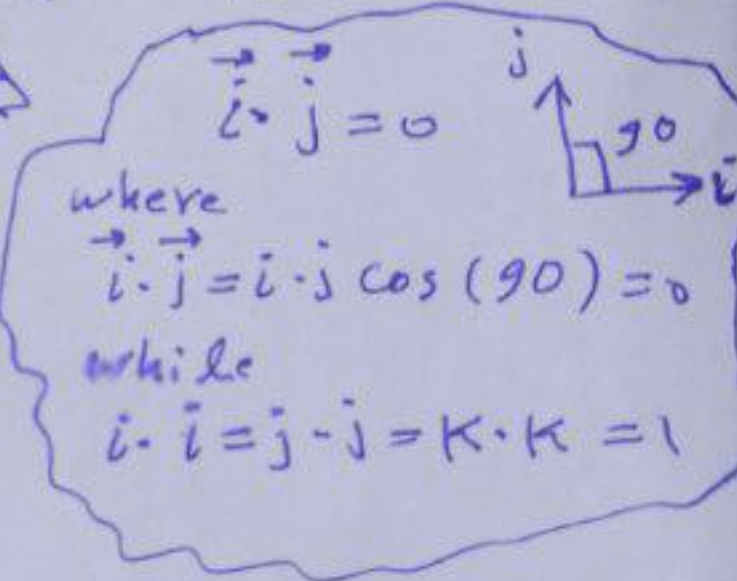 i⃗ · j⃗ = 0
j
90
i
where
i⃗ · j⃗ = i · j cos (90) = 0
while
i · i = j · j = K · K = 1